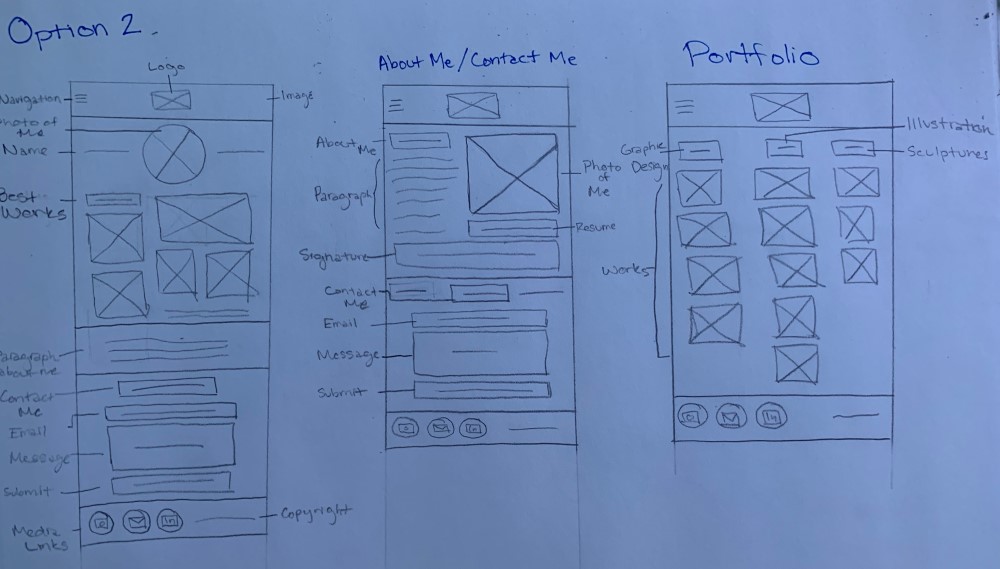 Option 2.
Logo
Navigation
Image
Photo of
Me
Name
Best
Works
Paragraph
about me
Contact
Me
Email
Message
Submit
Media
Links
Copyright
About Me/Contact Me
About
Me
Paragraph
Photo
of
Me
Resume
Signature
Contact
Me
Email
Message
Submit
in
Portfolio
Graphic
Design
Illustration
Sculptures
Works
in
in